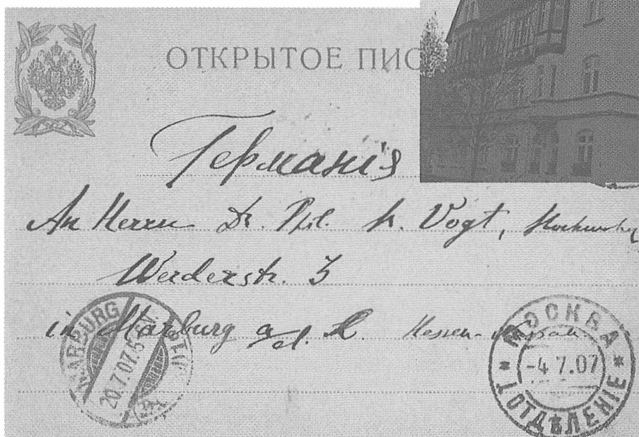 ОТКРЫТОЕ ПИС
Германія
An Herrn Dr. Phil. K. Vogt,
Werderstr. 3
in Marburg a/d. L. Hessen-Nassau
MARBURG
20.7.07.
МОСКВА
-4 7.07
1 ОТДѢЛЕНІЕ